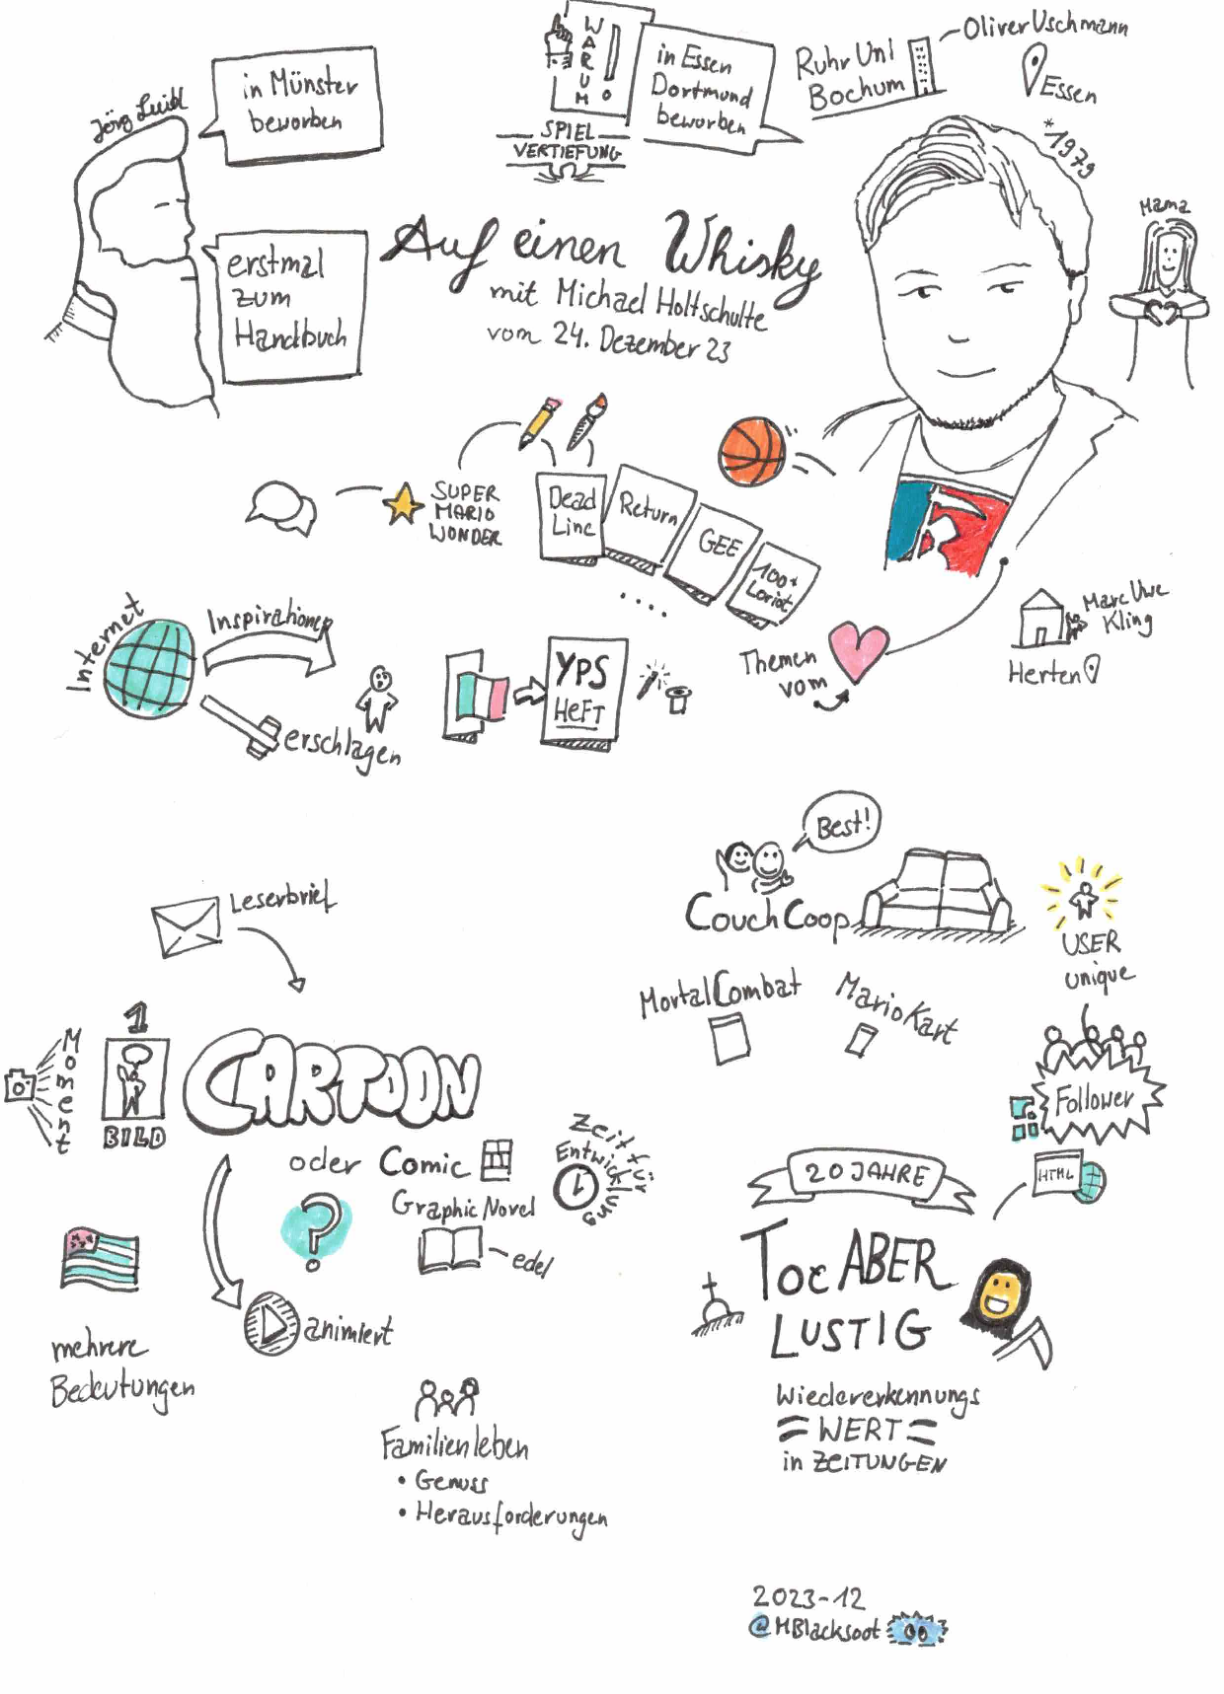 Jörg Luibl
in Münster
beworben
erstmal
zum
Handbuch
WARUM
!
SPIEL
VERTIEFUNG
in Essen
Dortmund
beworben
Ruhr Uni
Bochum
Oliver Uschmann
Essen
*1979
Mama
Auf einen Whisky
mit Michael Holtschulte
vom 24. Dezember 23
SUPER
MARIO
WONDER
Dead
Line
Return
GEE
100x
Loriot
....
Internet
Inspirationen
erschlagen
YPS
HEFT
Themen
vom
Marc Uwe
Kling
Herten
Best!
Couch Coop
Mortal Combat
Mario Kart
USER
unique
Follower
HTML
Leserbrief
Moment
1
BILD
CARTOON
oder Comic
Graphic Novel
edel
Zeit für
Entwicklung
?
animiert
mehrere
Bedeutungen
Familienleben
• Genuss
• Herausforderungen
20 JAHRE
Tot ABER
LUSTIG
Wiedererkennungs
WERT
in ZEITUNGEN
2023-12
@MBlacksoot